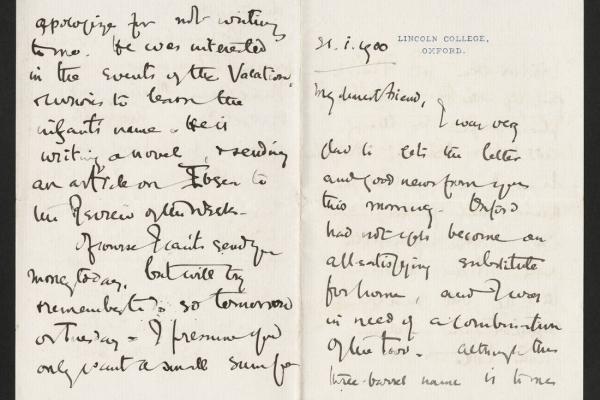 LINCOLN COLLEGE,
OXFORD.
21. i. 1900
My dearest friend,
I was very
glad to get the letter
and good news from you
this morning. Oxford
had not quite become an
all satisfying substitute
for home, and I was
in need of a combination
of the two. Although the
three-barrel name is to me
apologize for not writing
to me. He was interested
in the events of the Vacation,
& to learn the
infants name. He is
writing a novel, & sending
an article on Ibsen to
the Review of the Week.
Of course I can't send you
money today, but will try
remember to do so tomorrow
or Tuesday - I presume you
only want a small sum for